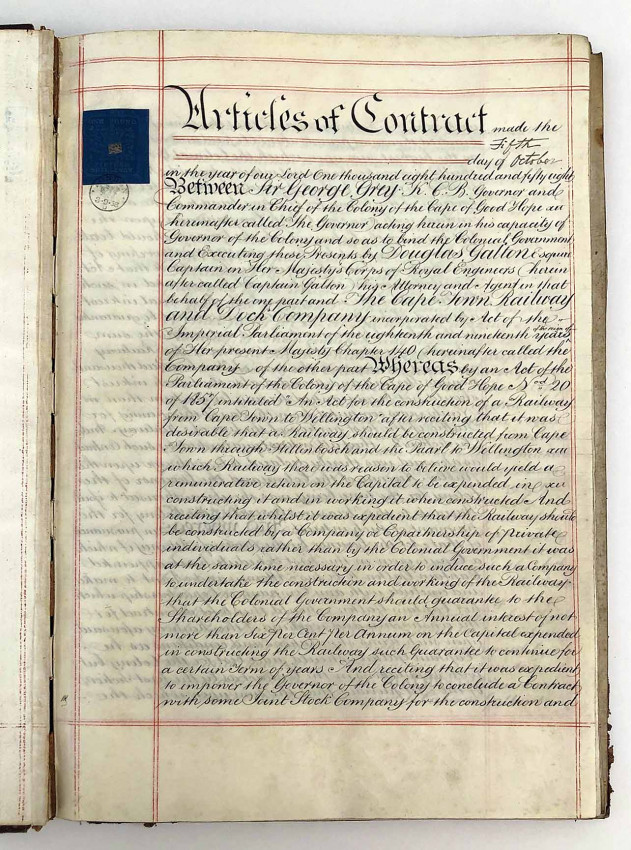 Articles of Contract made the
Fifth
day of October
in the year of our Lord One thousand eight hundred and fifty eight
Between Sir George Grey K. C. B. Governor and
Commander in Chief of the Colony of the Cape of Good Hope
hereinafter called The Governor acting herein in his capacity of
Governor of the Colony and so as to bind the Colonial Government
and Executing these Presents by Douglas Galton Esquire
Captain in Her Majesty's Corps of Royal Engineers (herein
after called Captain Galton) his Attorney and Agent in that
behalf of the one part and The Cape Town Railway
and Dock Company incorporated by Act of the
Imperial Parliament of the eighteenth and nineteenth years
the reign of
of Her present Majesty Chapter 140 (hereinafter called the
Company) of the other part Whereas by an Act of the
Parliament of the Colony of the Cape of Good Hope No. 20
of 1857 intituled "An Act for the construction of a Railway
from Cape Town to Wellington" after reciting that it was
desirable that a Railway should be constructed from Cape
Town through Stellenbosch and the Paarl to Wellington
which Railway there was reason to believe would yield a
remunerative return on the Capital to be expended in
constructing it and in working it when constructed And
reciting that whilst it was expedient that the Railway should
be constructed by a Company or Copartnership of private
individuals rather than by the Colonial Government it was
at the same time necessary in order to induce such a Company
to undertake the construction and working of the Railway
that the Colonial Government should guarantee to the
Shareholders of the Company an Annual interest of not
more than Six Per Cent Per Annum on the Capital expended
in constructing the Railway such Guarantee to continue for
a certain Term of years And reciting that it was expedient
to impower the Governor of the Colony to conclude a Contract
with some Joint Stock Company for the construction and